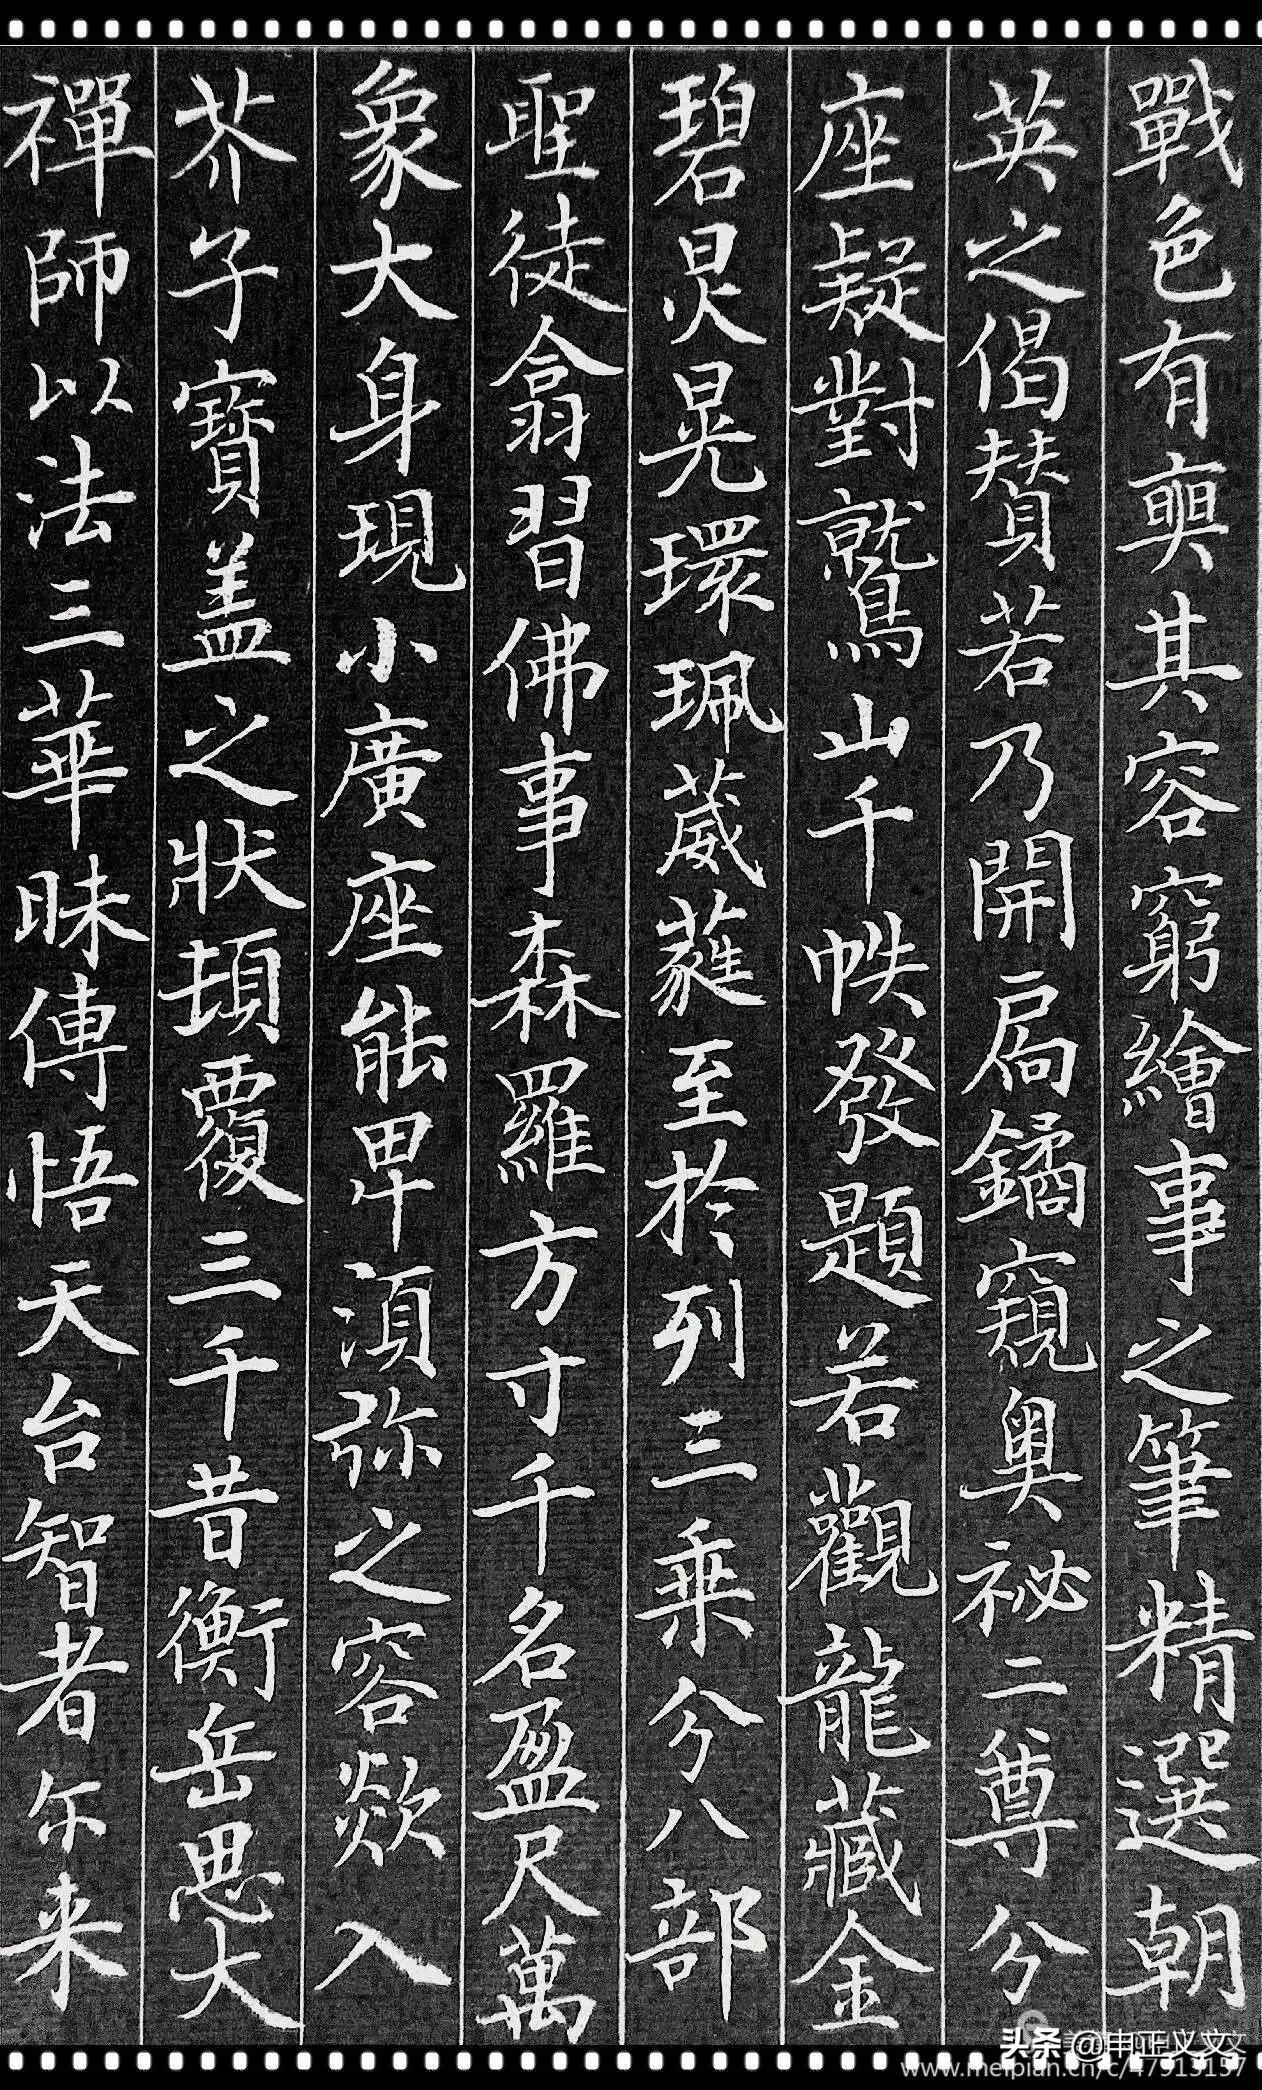 戰色有奭其容窮繪事之筆精選朝
英之偈贊若乃開扃鐍窺奧祕二尊分
座疑對鷲山千帙發題若觀龍藏金
碧炅晃環珮葳蕤至於列三乘分八部
聖徒翕習佛事森羅方寸千名盈尺萬
象大身現小廣座能卑須弥之容欻入
芥子寶盖之狀頓覆三千昔衡岳思大
禪師以法三華昧傳悟天台智者尒来
头条@申正义文
www.meipian.cn/c/47913157